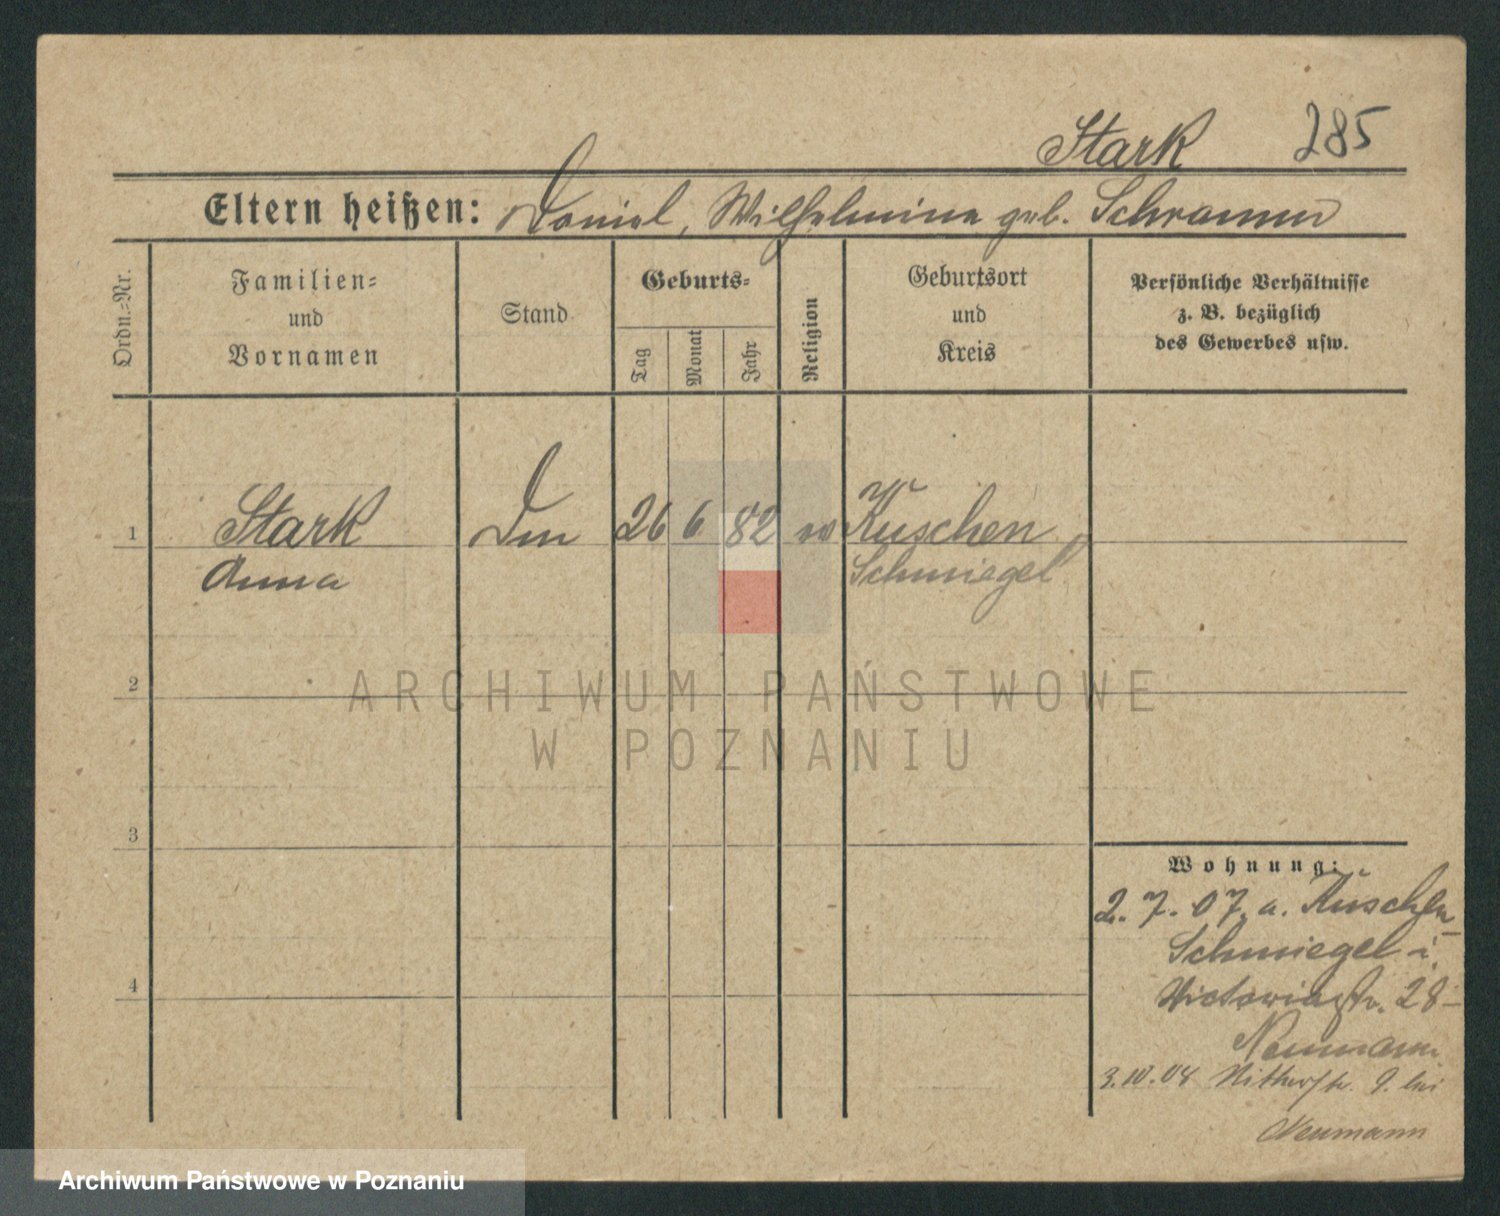 Stark 285
Eltern heißen: Daniel, Wilhelmine geb. Schramm
Ordn.-Nr.
Familien-
und
Vornamen
Stand
Geburts-
Tag
Monat
Jahr
Religion
Geburtsort
und
Kreis
Persönliche Verhältnisse
z. B. bezüglich
des Gewerbes usw.
1 Stark 26 6 82 Kuschen
Anna Schmiegel
2
3
4
Wohnung:
2. 7. 07. a. Kuschen
Schmiegel i.
Victoriastr. 28
Neumann
3.10.04 9. bei
Neumann
ARCHIWUM PAŃSTWOWE
W POZNANIU
Archiwum Państwowe w Poznaniu